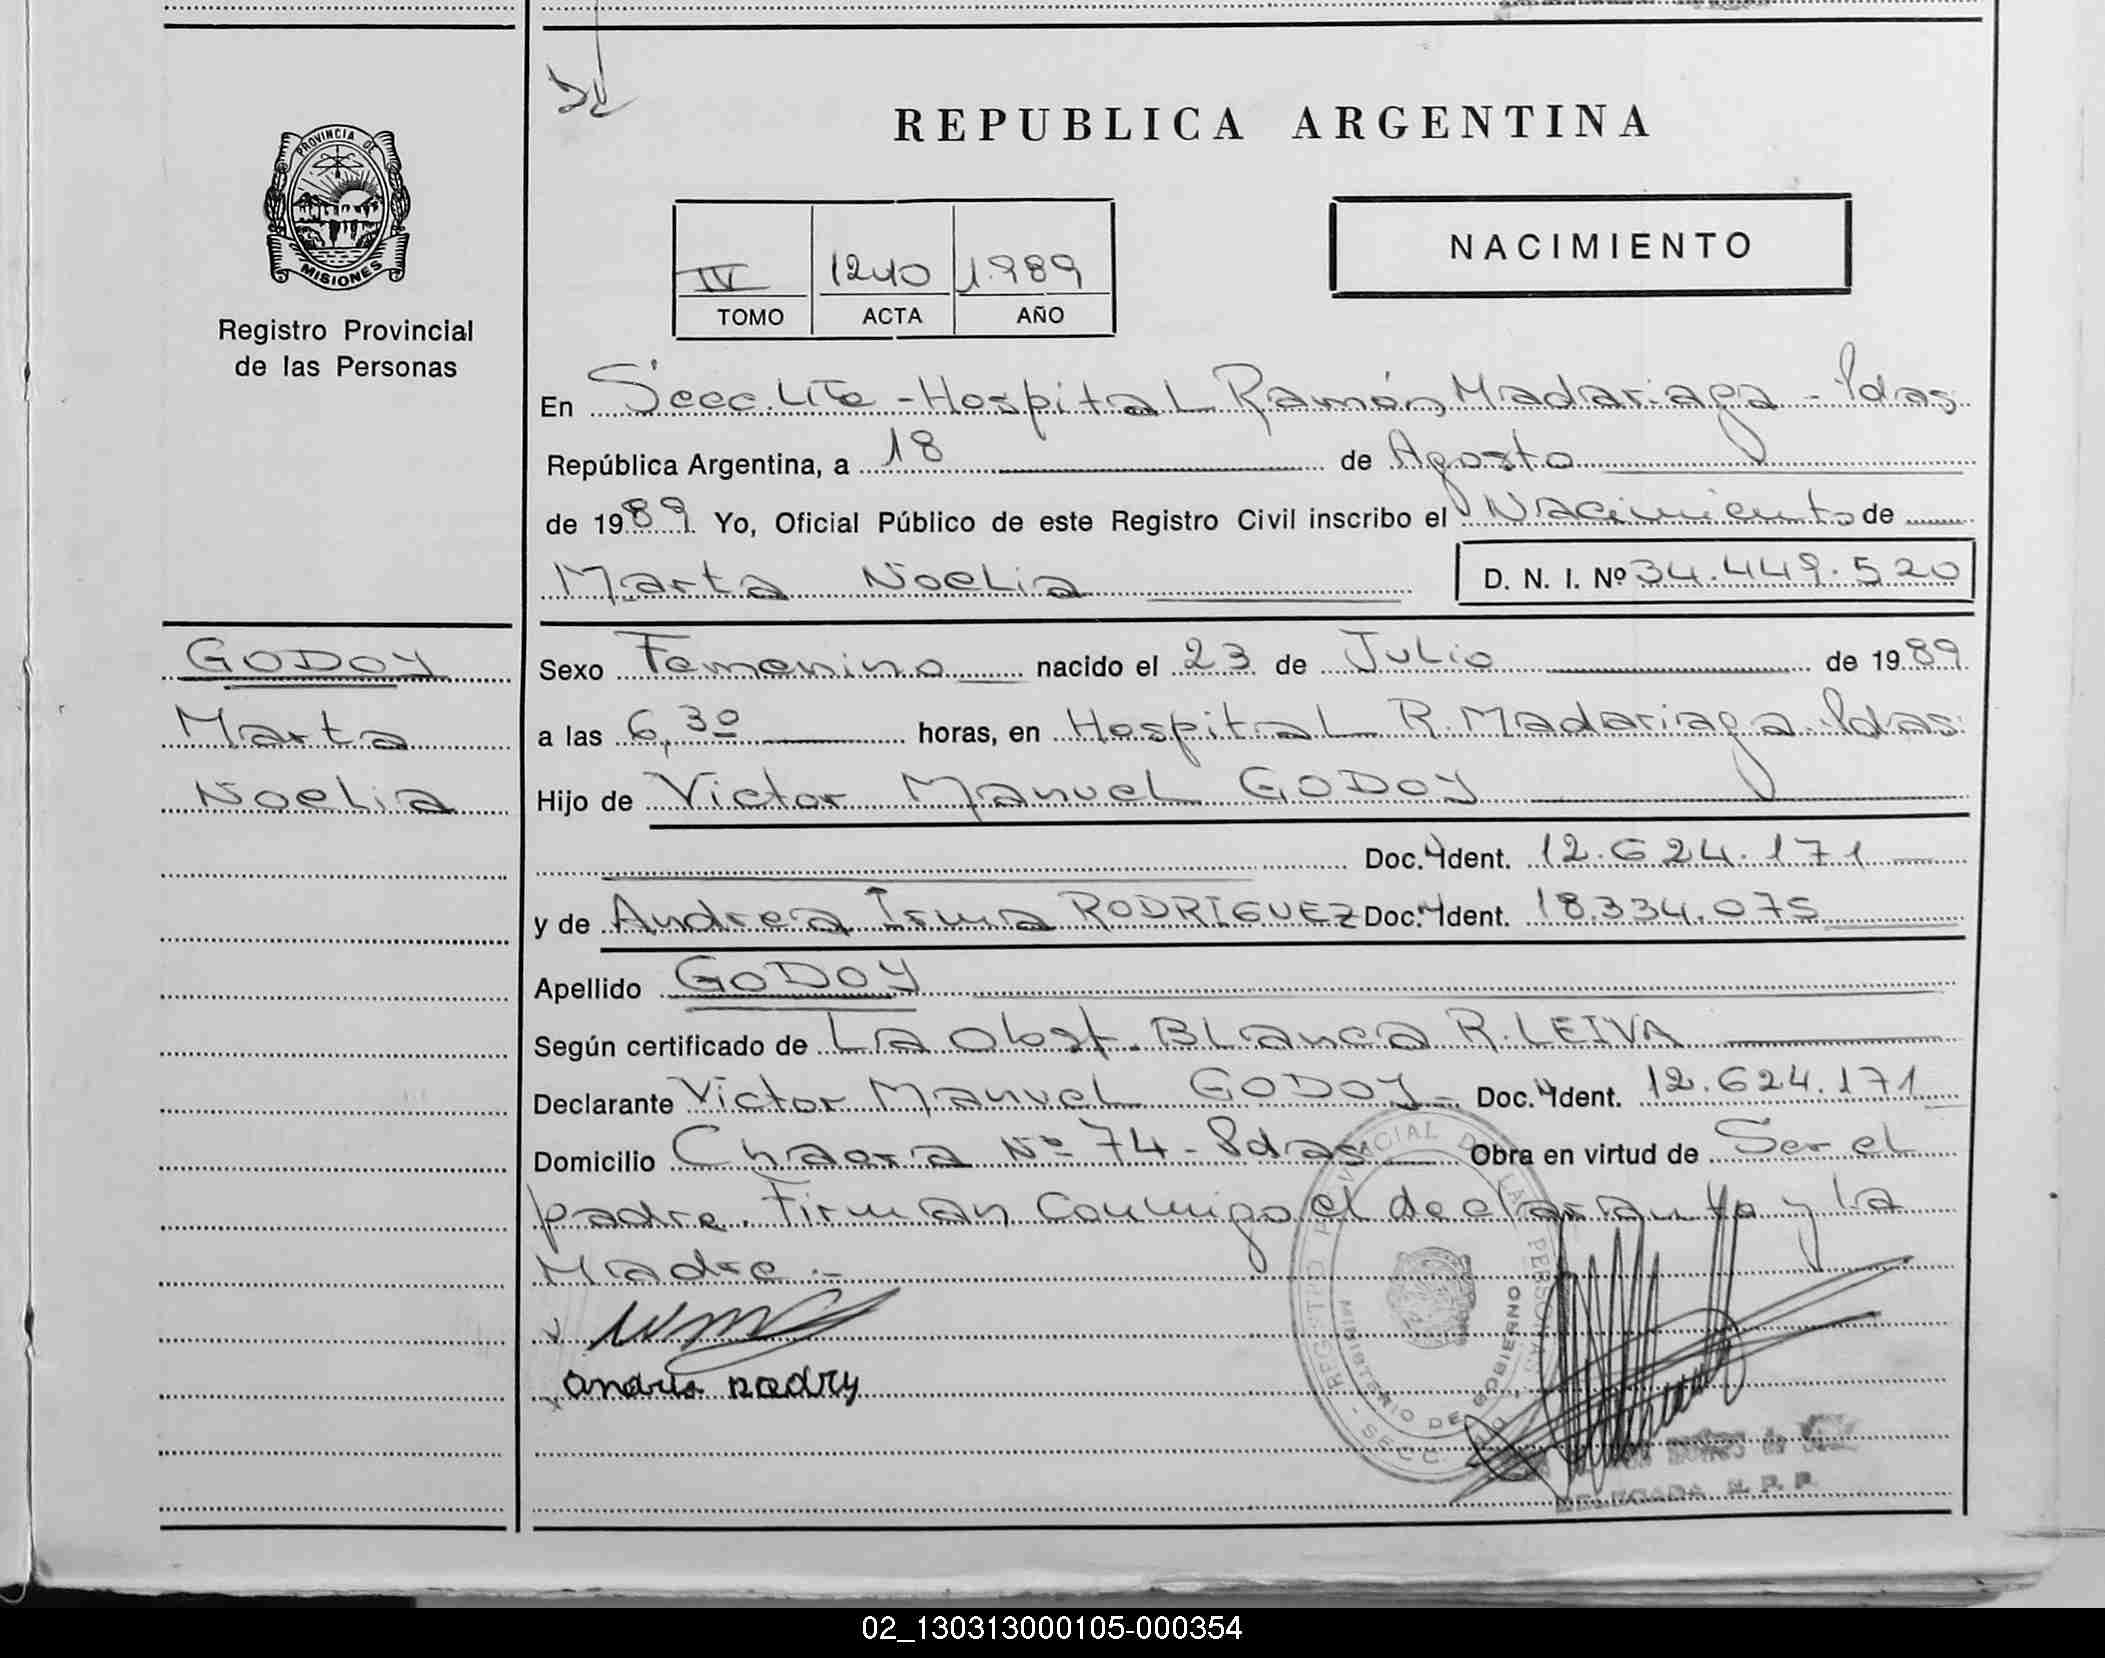 PROVINCIA DE
MISIONES
Registro Provincial
de las Personas
REPUBLICA ARGENTINA
IV 1240 1989
TOMO ACTA AÑO
NACIMIENTO
En Secc. - Hospital Ramón Madariaga - Pdas.
República Argentina, a 18 de Agosto
de 1989 Yo, Oficial Público de este Registro Civil inscribo el Nacimiento de
Marta Noelia D. N. I. Nº 34.449.520
GODOY
Marta
Noelia
Sexo Femenino nacido el 23 de Julio de 1989
a las 6,30 horas, en Hospital R. Madariaga Pdas.
Hijo de Victor Manuel GODOY
Doc. Ident. 12.624.171
y de Andrea Irma RODRIGUEZ Doc. Ident. 18.334.075
Apellido GODOY
Según certificado de La Obst. Blanca R. LEIVA
Declarante Victor Manuel GODOY - Doc. Ident. 12.624.171
Domicilio Chacra Nº 74 - Pdas. Obra en virtud de Ser el
padre. Firman Conmigo el declarante y la
Madre.-
REGISTRO PROVINCIAL DE LAS PERSONAS
MINISTERIO DE GOBIERNO
SECC.
DELEGADA R. P. P.
02_130313000105-000354